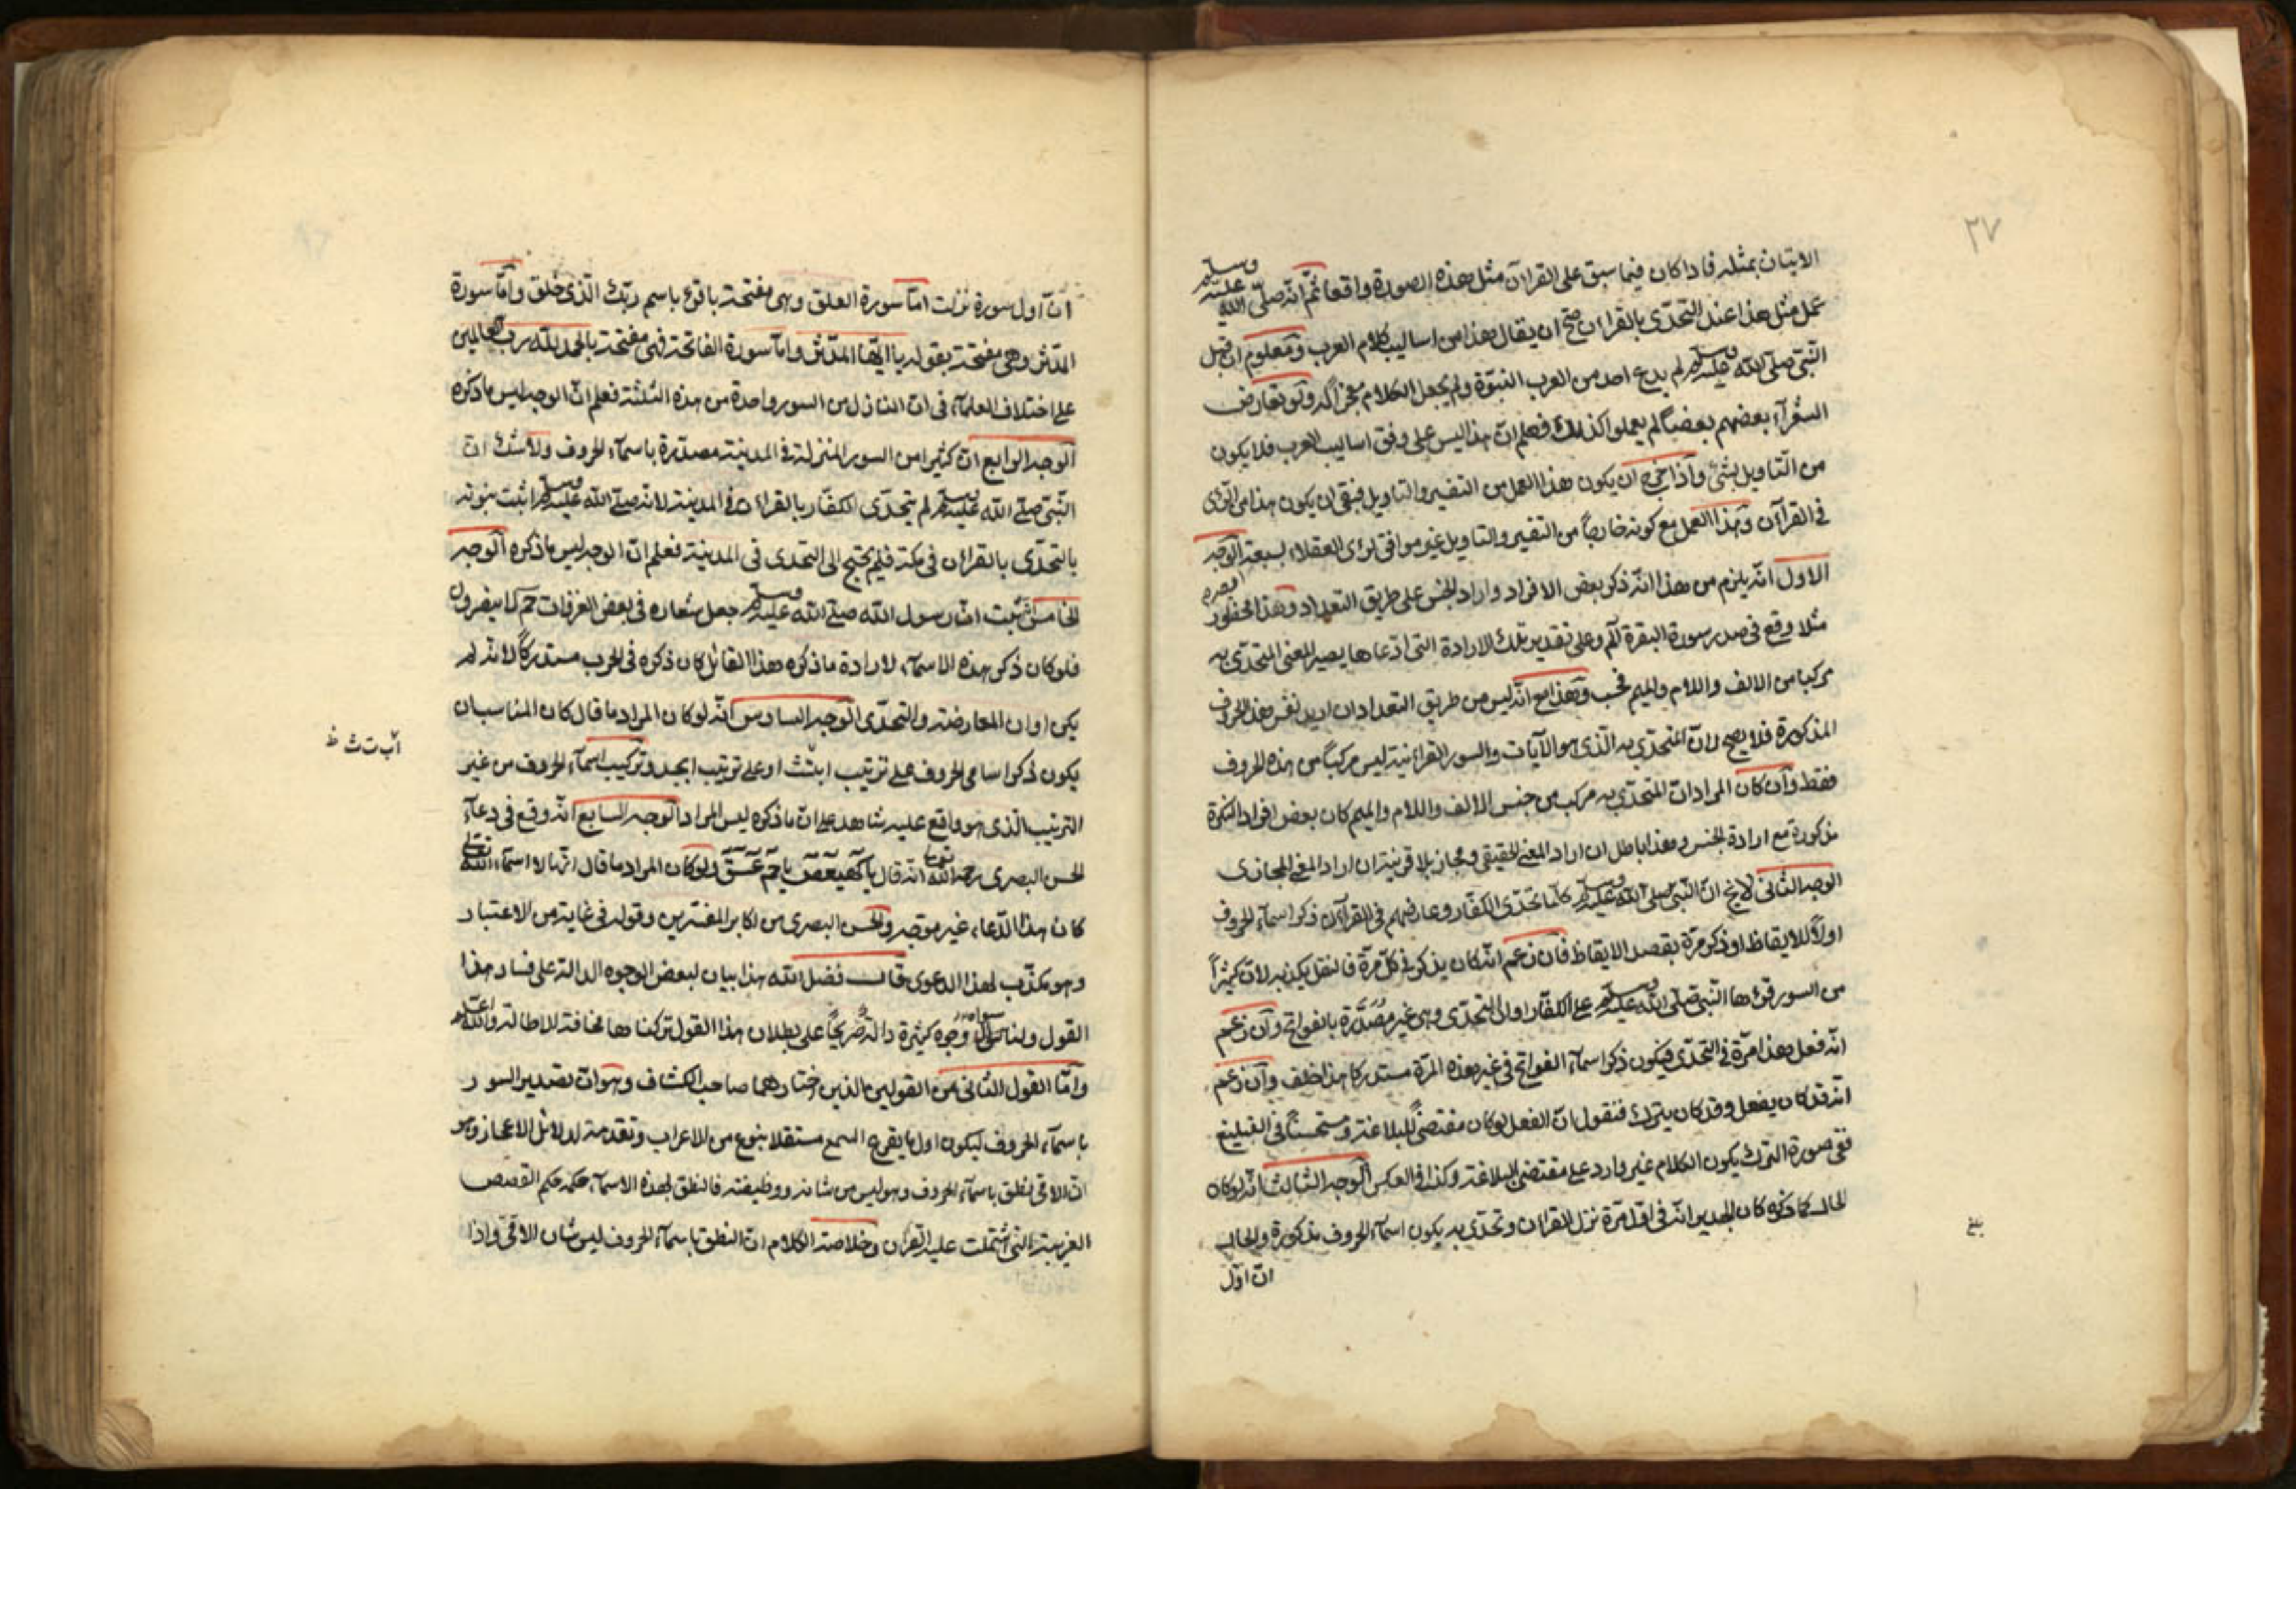 ٢٧
الاتيان بمثله فاذا كان فيما سبق على القرآن مثل هذه الصورة واقعا ثم انه صلى الله عليه وسلم
عمل مثل هذا عند التحدى بالقرآن صح ان يقال هذا من اساليب كلام العرب ومعلوم ان قبل
النبى صلى الله عليه وسلم لم يدع احد من العرب النبوة ولم يجعل الكلام معجزا له ولو تعارض
الشعرآء بعضهم بعضا لم يعملوا كذلك فعلم ان هذا ليس على وفق اساليب العرب فلا يكون
من التاويل بشئ واذا خرج ان يكون هذا العمل من التفسير والتاويل فبقى ان يكون هذا من الراى
فى القرآن وهذا العمل مع كونه خارجا من التفسير والتاويل غير موافق لراى العقلاء لسبعة الوجه
الاول انه يلزم من هذا انه ذكر بعض الافراد واراد الجنس على طريق التعداد وهذا محظور
مثلا وقع فى صدر سورة البقرة الم وعلى تقدير تلك الارادة التى ادعاها يصير المعنى المتحدى به
مركبا من الالف واللام والميم فحسب وهذا مع انه ليس من طريق التعداد ان اريد نفس هذه الحروف
المذكورة فلا يصح لان المتحدى به الذى هو الآيات والسور القرانية ليس مركبا من هذه الحروف
فقط وان كان المراد ان المتحدى به مركب من جنس الالف واللام والميم كان بعض افراد النكرة
مذكورة مع ارادة الجنس وهذا باطل ان اراد المعنى الحقيقى ومجاز بلا قرينة ان اراد المعنى المجازى
الوجه الثانى لا يخ ان النبى صلى الله عليه وسلم كلما تحدى الكفار وعارضهم فى القرآن ذكر اسمآء الحروف
اولا للايقاظ او ذكر مرة بقصد الايقاظ فان زعم انه كان يذكر فى كل مرة فالنقل يكذبه لان كثيرا
من السور قرءها النبى صلى الله عليه وسلم على الكفار اوان التحدى وهى غير مصدرة بالفواتح وان زعم
انه فعل هذا مرة فى التحدى فيكون ذكر اسمآء الفواتح فى غير هذه المرة مستدركا هذا خلف وان زعم
انه قد كان يفعل وقد كان يترك فنقول ان الفعل لو كان مقتضى للبلاغة ومستحسنا فى التبليغ
ففى صورة الترك يكون الكلام غير وارد على مقتضى البلاغة وكذا فى العكس الوجه الثالث انه لو كان
الحال كما ذكره كان الجدير انه فى اول مرة نزل القرآن وتحدى به يكون اسمآء الحروف مذكورة والحال
ان اول
ان اول سورة نزلت اما سورة العلق وهى مفتتحة باقرء باسم ربك الذى خلق واما سورة
المدثر وهى مفتتحة بقوله يا ايها المدثر واما سورة الفاتحة فهى مفتتحة بالحمد لله رب العالمين
على اختلاف العلمآء فى ان النازل من السور واحدة من هذه الثلثة فعلم ان الوجه ليس ما ذكره
الوجه الرابع ان كثيرا من السور المنزلة فى المدينة مصدرة باسمآء الحروف ولا شك ان
النبى صلى الله عليه وسلم لم يتحدى الكفار بالقرآن فى المدينة لانه صلى الله عليه وسلم اثبت نبوته
بالتحدى بالقرآن فى مكة فلم يحتج الى التحدى فى المدينة فعلم ان الوجه ليس ما ذكره الوجه
الخامس ثبت ان رسول الله صلى الله عليه وسلم جعل شعاره فى بعض الغزوات حم لا ينصرون
فلو كان ذكر هذه الاسمآء لارادة ما ذكره هذا القائل كان ذكره فى الحرب مستدركا لانه لم
يكن اوان المعارضة والتحدى الوجه السادس انه لو كان المراد ما قال كان المناسب ان
يكون ذكر اسامى الحروف على ترتيب ابتث او على ترتيب ابجد وتركيب اسمآء الحروف من غير
اب ت ث ظ
الترتيب الذى هو واقع عليه شاهد على ان ما ذكره ليس المراد الوجه السابع انه وقع فى دعآء
الحسن البصرى رحمه الله تعالى انه قال يا كهيعص يا حم عسق ولو كان المراد ما قال انها لا اسمآء الله تعالى
كان هذا الدعاء غير موجه والحسن البصرى من اكابر المفسرين وقوله فى غاية من الاعتبار
وهو مكذب لهذا الدعوى قال فضل الله هذا بيان لبعض الوجوه الدالة على فساد هذا
القول ولنا سواه وجوه كثيرة دالة صريحا على بطلان هذا القول تركناها مخافة للاطالة والله اعلم
واما القول الثانى من القولين الذين اختارهما صاحب الكشاف وهو ان تصدير السور
باسمآء الحروف ليكون اول ما يقرع السمع مستقلا بنوع من الاعراب وتقدمة لدلائل الاعجاز وهو
ان الامى نطق باسمآء الحروف وهو ليس من شانه ووظيفته فالنطق لهذه الاسمآء حكمه حكم القصص
الغريبة التى اشتملت عليه القرآن وخلاصة الكلام ان النطق باسمآء الحروف ليس شان الامى واذا